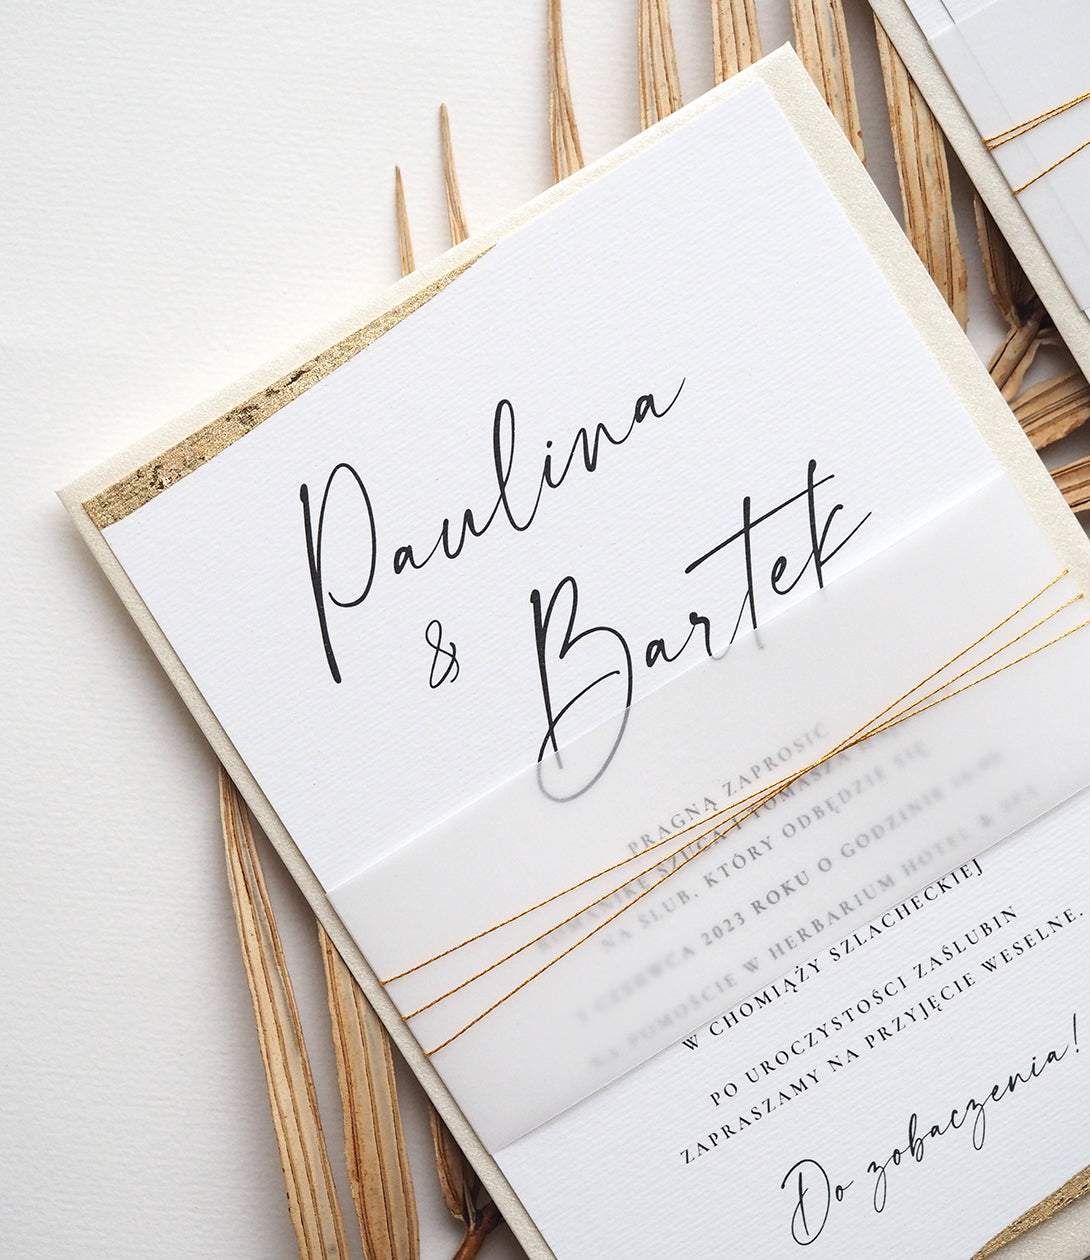 Paulina
& Bartek
PRAGNĄ ZAPROSIĆ
DOMINIKĘ SZUCĄ I TOMASZA
NA ŚLUB, KTÓRY ODBĘDZIE SIĘ
CZERWCA 2023 ROKU O GODZINIE
NA POMOŚCIE W HERBARIUM HOTEL & SPA
W CHOMIĄŻY SZLACHECKIEJ
PO UROCZYSTOŚCI ZAŚLUBIN
ZAPRASZAMY NA PRZYJĘCIE WESELNE.
Do zobaczenia!